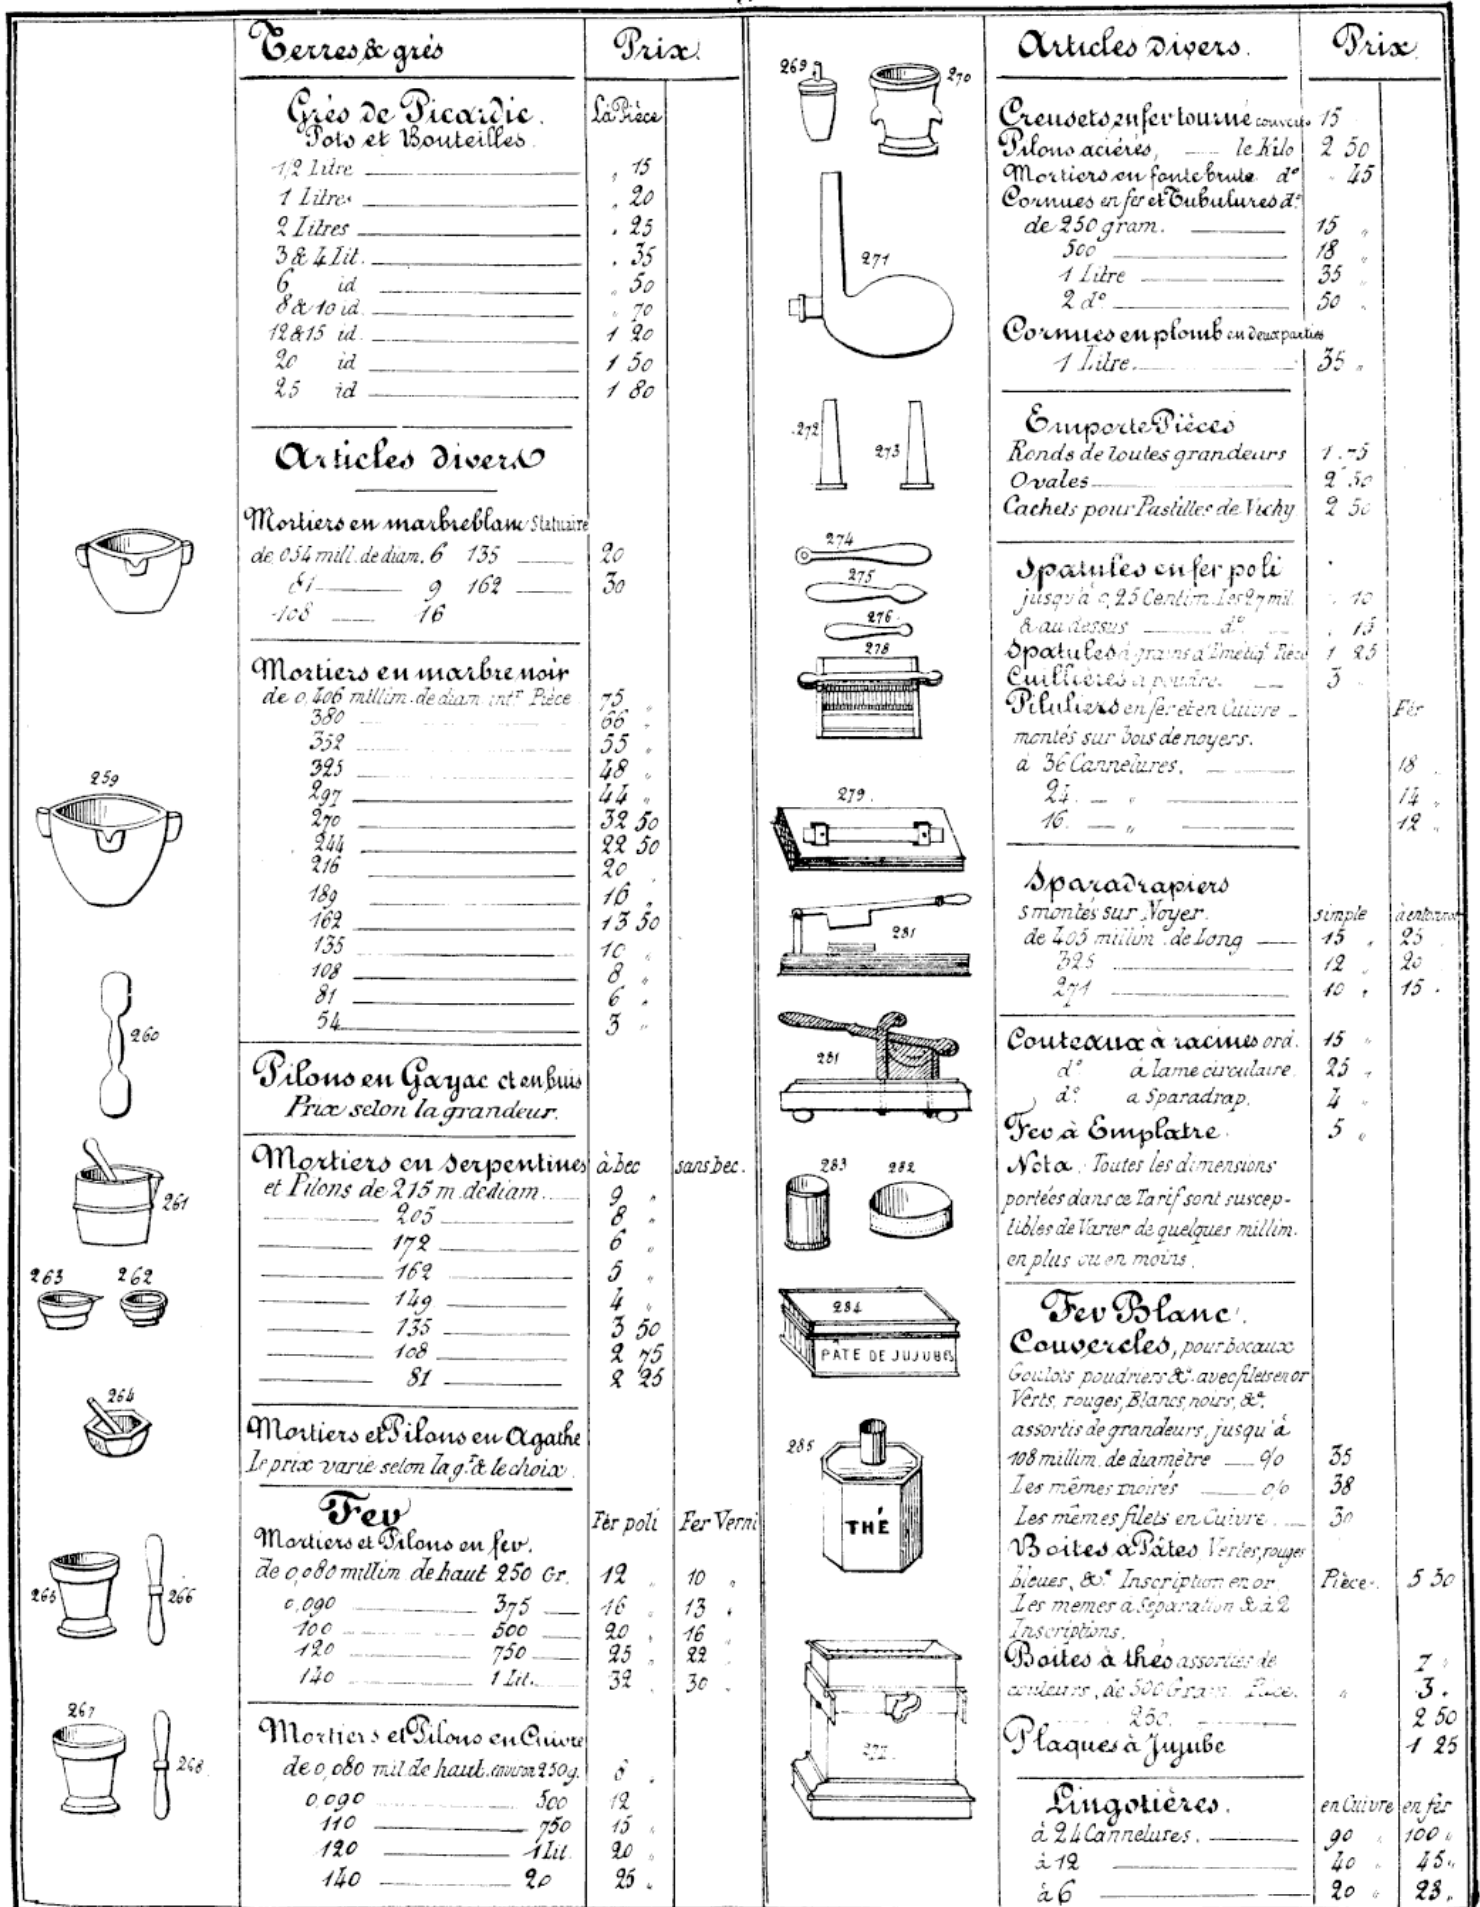 Terres & grès Prix.
Grès de Picardie. La Pièce
Pots et Bouteilles.
1/2 Litre , 15
1 Litre , 20
2 Litres , 25
3 & 4 Lit. , 35
6 id , 50
8 & 10 id. , 70
12 & 15 id. 1 20
20 id 1 50
25 id 1 80
Articles divers
Mortiers en marbre blanc Statuaire
de 054 mill. de diam. 6 135 20
81 9 162 30
108 16
Mortiers en marbre noir
de 0,406 millim. de diam. intr. Pièce 75 "
380 66 "
352 55 "
325 48 "
297 44 "
270 32 50
244 22 50
216 20
189 16 "
162 13 50
135 10 "
108 8 "
81 6 "
54 3 "
Pilons en Gayac et en buis
Prix selon la grandeur.
Mortiers en Serpentines à bec sans bec.
et Pilons de 215 m. de diam. 9 "
205 8 "
172 6 "
162 5 "
149 4 "
135 3 50
108 2 75
81 2 25
Mortiers et Pilons en Agathe
le prix varie selon la g.r & le choix.
Fer Fer poli Fer Verni
Mortiers et Pilons en fer.
de 0,080 millim de haut 250 Gr. 12 " 10 "
0,090 375 16 " 13 "
100 500 20 " 16 "
120 750 25 " 22 "
140 1 Lit. 32 " 30 "
Mortiers et Pilons en Cuivre
de 0,080 mil de haut. environ 250 g.
0,090 500 12
110 750 15 "
120 1 Lit. 20 "
140 20 25 "
259
260
261
263 262
264
265 266
267 268
Articles divers. Prix.
Creusets en fer tourné couverts 15
Pilons aciérés, le Kilo 2 50
Mortiers en fonte brute d° " 45
Cornues en fer et Tubulures d°
de 250 gram. 15 "
500 18 "
1 Litre 35 "
2 d° 50 "
Cornues en plomb en deux parties
1 Litre. 35 "
Emporte Pièces
Ronds de toutes grandeurs 1 75
Ovales 2 50
Cachets pour Pastilles de Vichy 2 50
Spatules en fer poli
jusqu'à 0,25 Centim. Les 27 mil. " 10
& au dessus d° " 15
Spatules à grains d'Emétiq. Pièce 1 25
Cuillières à poudre. 3 "
Piluliers en fer et en Cuivre Fer
montés sur bois de noyers.
à 36 Cannelures. 18 "
24. " 14 "
16. " 12 "
Sparadrapiers
montés sur Noyer. simple
de 405 millim. de Long 15 " 25
325 12 " 20
271 10 " 15 "
Couteaux à racines ord. 15 "
d° à lame circulaire. 25 "
d° a Sparadrap. 4 "
Fer à Emplatre. 5 "
Nota. Toutes les dimensions
portées dans ce Tarif sont suscep-
tibles de Varier de quelques millim.
en plus ou en moins.
Fer Blanc.
Couvercles, pour bocaux
Goulots poudriers &a. avec filets en or
Verts, rouges, Blancs, noirs, &a.
assortis de grandeurs, jusqu'à
108 millim. de diamètre % 35
Les mêmes moirés % 38
Les même filets en Cuivre. 30
Boites à Pâtes Vertes, rouges
bleues, &a Inscription en or Pièce. 5 50
Les mêmes à Séparation & à 2
Inscriptions. 7 "
Boites à thés assorties de
couleurs, de 500 Gram. Pièce. " 3 "
250. 2 50
Plaques à Jujube 1 25
Lingotières. en Cuivre en fer
à 24 Cannelures. 90 " 100 "
à 12 40 " 45 "
à 6 20 " 23 "
269 270
271
272 273
274
275
276
278
279.
281
281
283 282
284
PÂTE DE JUJUBES
285
THÉ
277